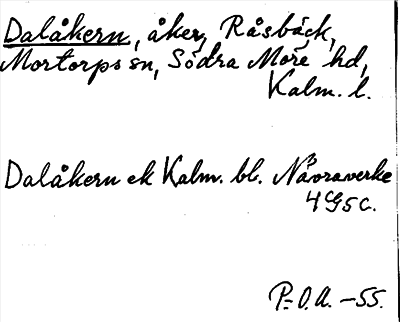 Dalåkern, åker, Råsbäck,
Mortorps sn, Södra Möre hd,
Kalm. l.
Dalåkern ek Kalm. bl. Påvoraverke
4G5c.
P.O.A. -55.